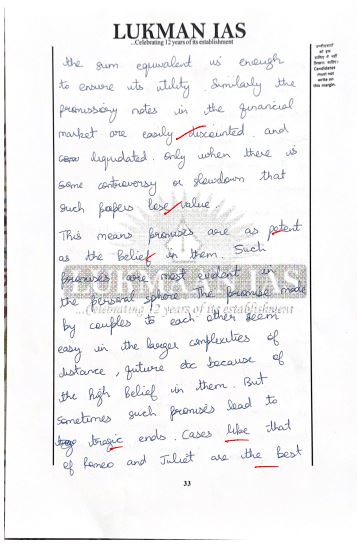 LUKMAN IAS
...Celebrating 12 years of its establishment
उम्मीदवारों को इस हाशिए में नहीं लिखना चाहिए।
Candidates must not write on this margin.
the sum equivalent is enough
to ensure its utility. Similarly the
promissory notes in the financial
market are easily discounted and
liquidated. Only when there is
some controversy or slowdown that
such papers lose value.
This means promises are as potent
as the Belief in them. Such
promises are most evident in
the personal sphere. The promise made
by couples to each other seem
easy in the larger complexities of
distance, future etc because of
the high Belief in them. But
sometimes such promises lead to
tragic ends. Cases like that
of Romeo and Juliet are the best
LUKMAN IAS
...Celebrating 12 years of its establishment
33